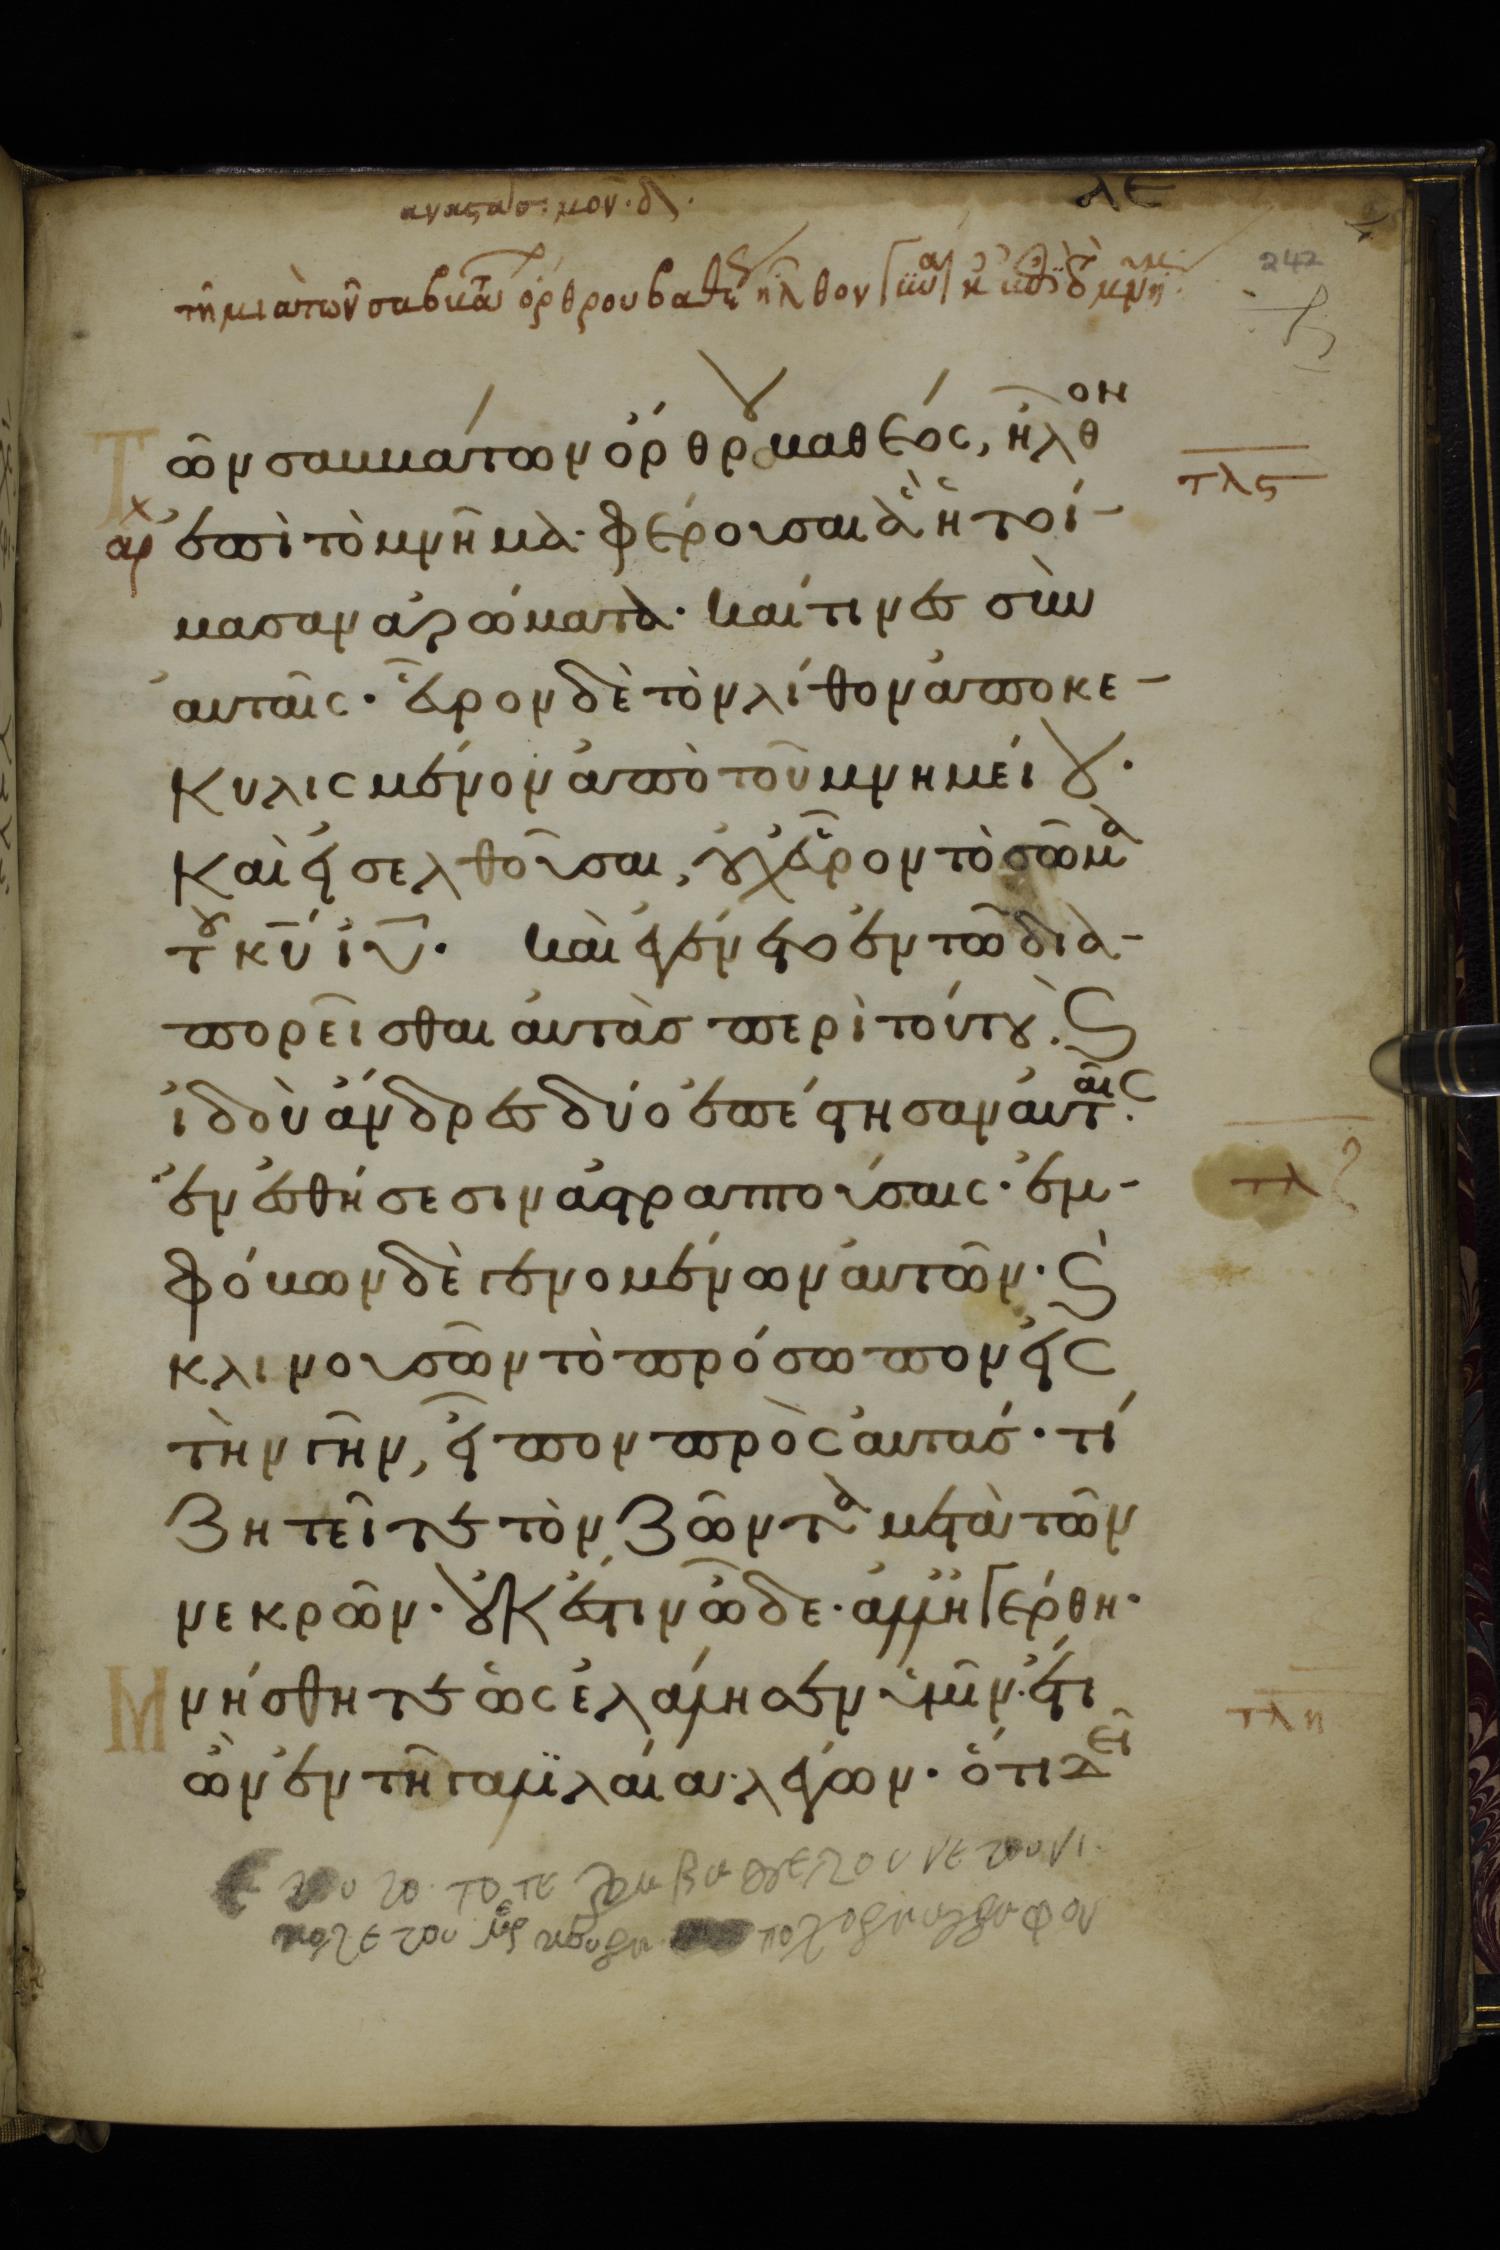 λε
242
τῆ μιᾶ τῶν σαββάτων ὄρθρου βαθέως ἦλθον
τλς
ῶν σαββάτων ὄρθρου βαθέος, ἦλθον
αρχ
ἐπὶ τὸ μνῆμα· φέρουσαι ἃ ἡτοί-
μασαν ἀρώματα· καί τινες σὺν
αὐταῖς· εὗρον δὲ τὸν λίθον ἀποκε-
κυλισμένον ἀπὸ τοῦ μνημείου·
καὶ εἰσελθοῦσαι, οὐχ εὗρον τὸ σῶμα
τοῦ κυ ιυ· καὶ ἐγένετο ἐν τῶ δια-
πορεῖσθαι αὐτὰς περὶ τούτου· καὶ
ἰδοὺ ἄνδρες δύο ἐπέστησαν αὐταῖς·
ἐν ἐσθήσεσιν ἀστραπτούσαις· ἐμ-
τλζ
φόβων δὲ γενομένων αὐτῶν· καὶ
κλινουσῶν τὸ πρόσωπον εἰς
τὴν γῆν, εἶπον πρὸς αὐτάς· τί
ζητεῖτε τὸν ζῶντα μετὰ τῶν
νεκρῶν· οὐκ ἔστιν ὧδε· ἀλλ' ἠγέρθη·
Μνήσθητε ὡς ἐλάλησεν ὑμῖν· ἔτι
τλη
ὢν ἐν τῆ γαλιλαία λέγων· ὅτι δεῖ